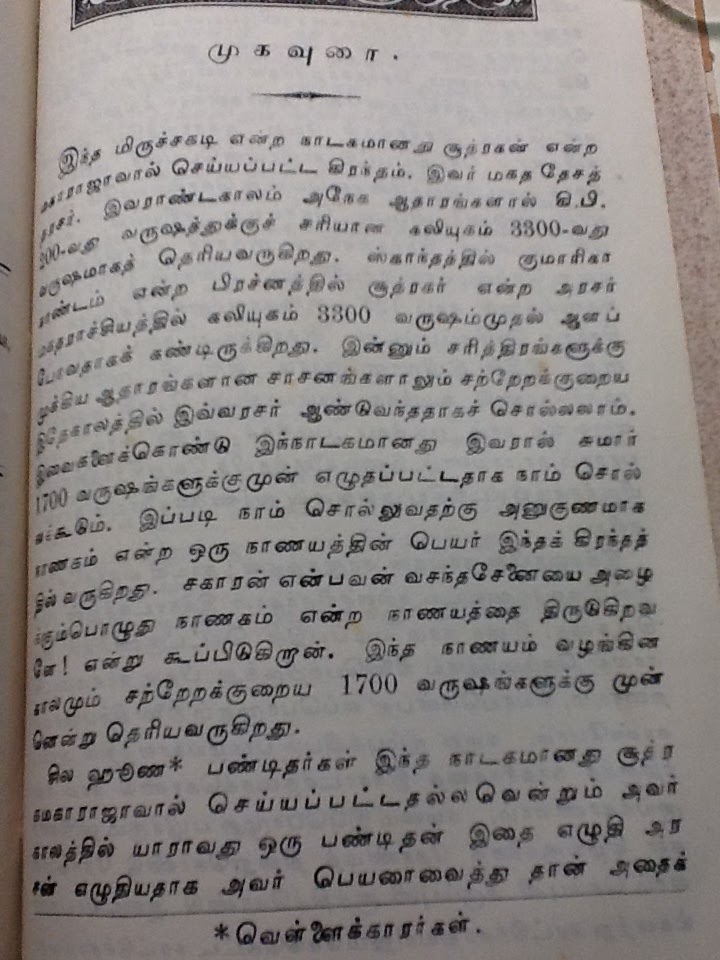 முகவுரை.
இந்த மிருச்சகடி என்ற நாடகமானது சூத்ரகன் என்ற
மகாராஜாவால் செய்யப்பட்ட கிரந்தம். இவர் மகத தேசத்
தரசர். இவராண்டகாலம் அநேக ஆதாரங்களால் கி.பி.
200-வது வருஷத்துக்குச் சரியான கலியுகம் 3300-வது
வருஷமாகத் தெரியவருகிறது. ஸ்காந்தத்தில் குமாரிகா
கண்டம் என்ற பிரச்னத்தில் சூத்ரகர் என்ற அரசர்
மகதராச்சியத்தில் கலியுகம் 3300 வருஷம்முதல் ஆளப்
போவதாகக் கண்டிருக்கிறது. இன்னும் சரித்திரங்களுக்கு
முக்கிய ஆதாரங்களான சாசனங்களாலும் சற்றேறக்குறைய
இதேகாலத்தில் இவ்வரசர் ஆண்டுவந்ததாகச் சொல்லலாம்.
இவைகளைக்கொண்டு இந்நாடகமானது இவரால் சுமார்
1700 வருஷங்களுக்குமுன் எழுதப்பட்டதாக நாம் சொல்
லக்கூடும். இப்படி நாம் சொல்லுவதற்கு அனுகுணமாக
நாணகம் என்ற ஒரு நாணயத்தின் பெயர் இந்தக் கிரந்தத்
தில் வருகிறது. சகாரன் என்பவன் வசந்தசேனையை அழை
க்கும்பொழுது நாணகம் என்ற நாணயத்தை திருடுகிறவ
ளே! என்று கூப்பிடுகிறான். இந்த நாணயம் வழங்கின
காலமும் சற்றேறக்குறைய 1700 வருஷங்களுக்கு முன்
னென்று தெரியவருகிறது.
சில ஹூண* பண்டிதர்கள் இந்த நாடகமானது சூத்ர
கமகாராஜாவால் செய்யப்பட்டதல்லவென்றும் அவர்
காலத்தில் யாராவது ஒரு பண்டிதன் இதை எழுதி அர
சன் எழுதியதாக அவர் பெயரைவைத்து தான் அதைக்
*வெள்ளைக்காரர்கள்.